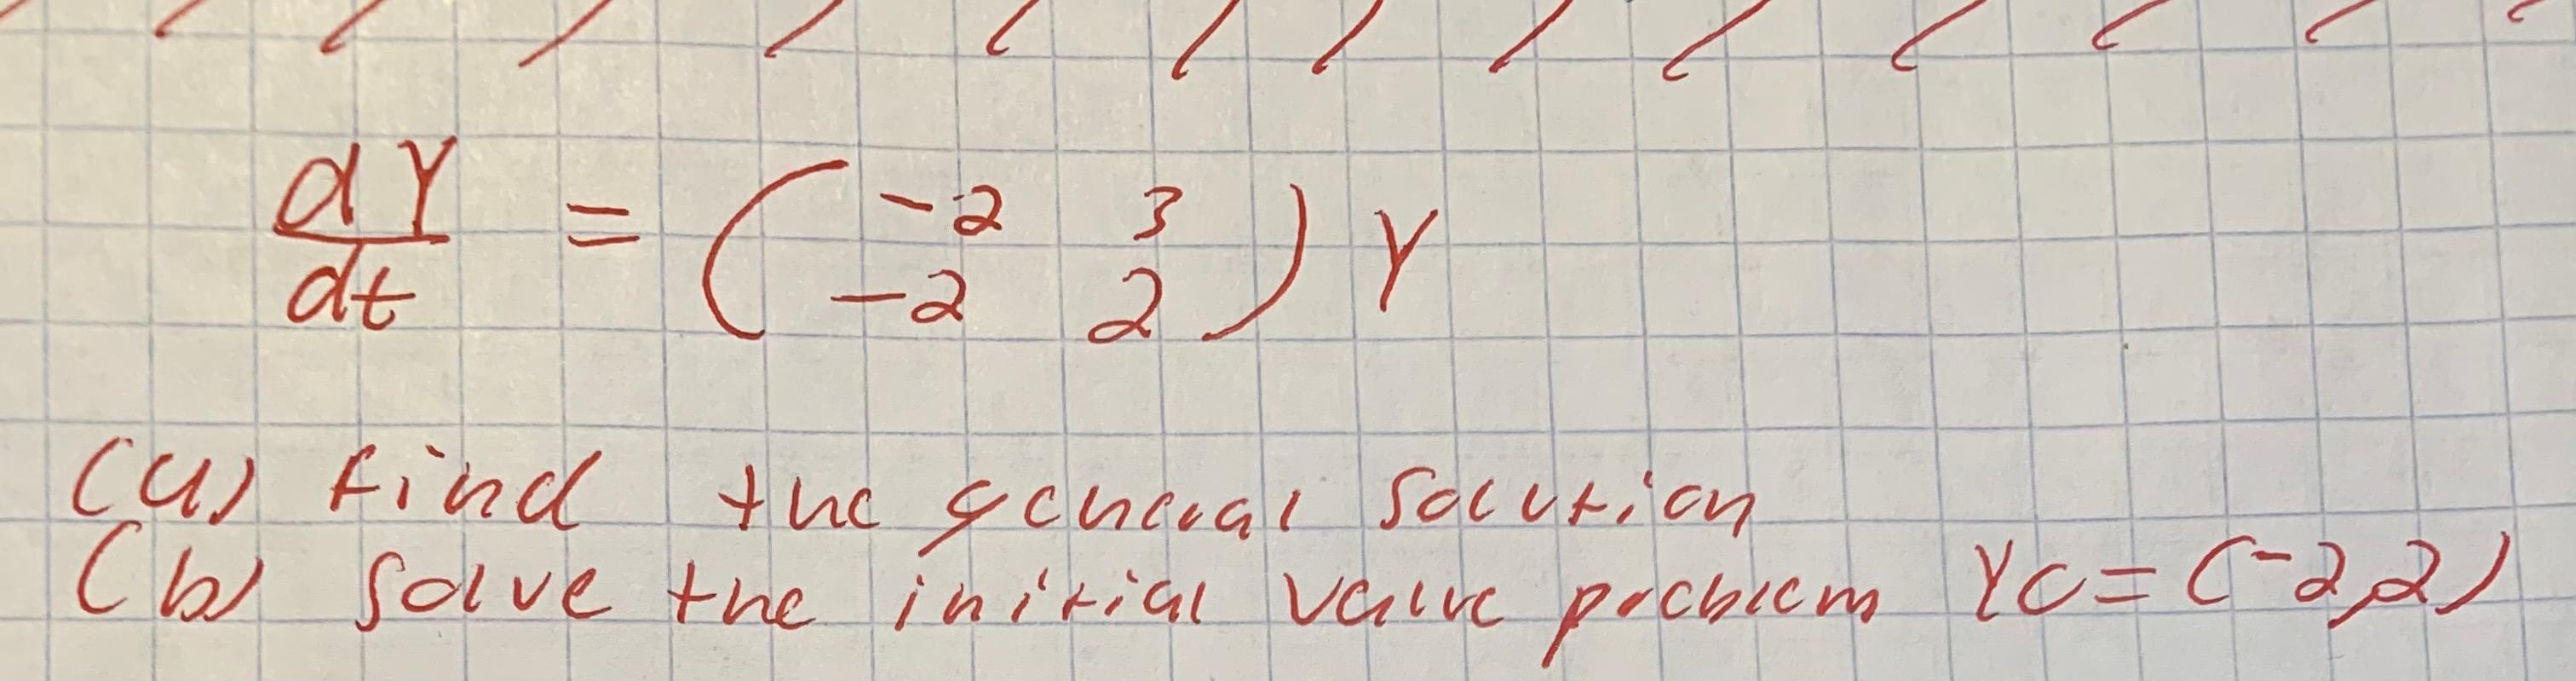 dY/dt = ( -2 3 ) Y
( -2 2 )
(a) find the general solution
(b) solve the initial value problem Y0 = (-2,2)